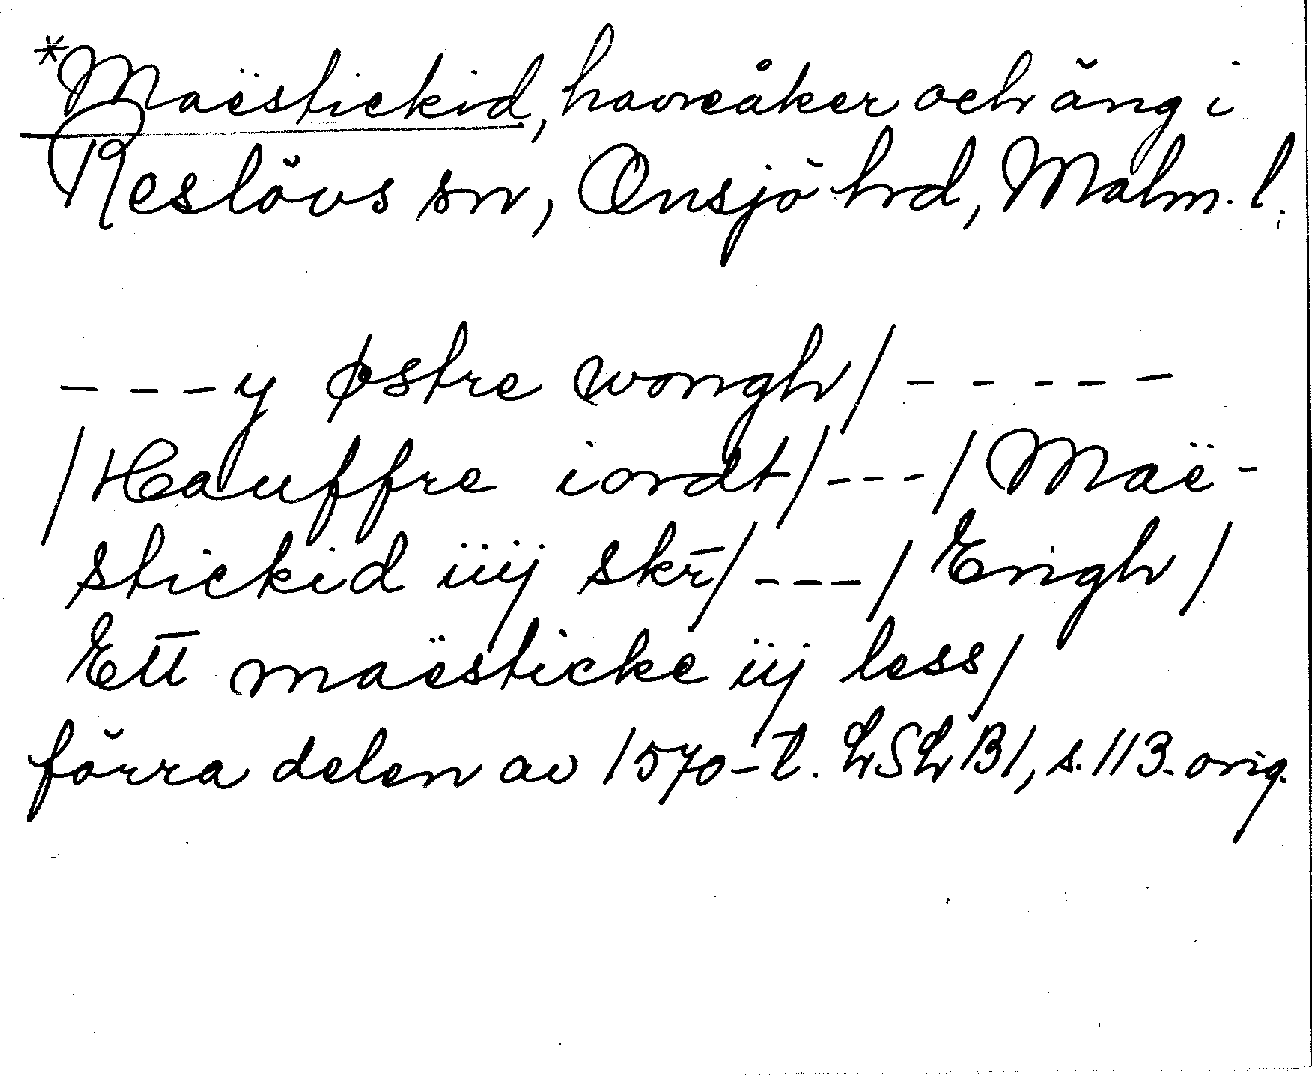 *Maëstickid, havreåker och äng i
Reslövs sn, Onsjö hd, Malm. l.
---y østre wongh/-----
/Hauffre iordt/---/Maë-
stickid iiij skr̄/---/Engh/
Ett maësticke iij less/
förra delen av 1570-t. LSLB1, s. 113. orig.